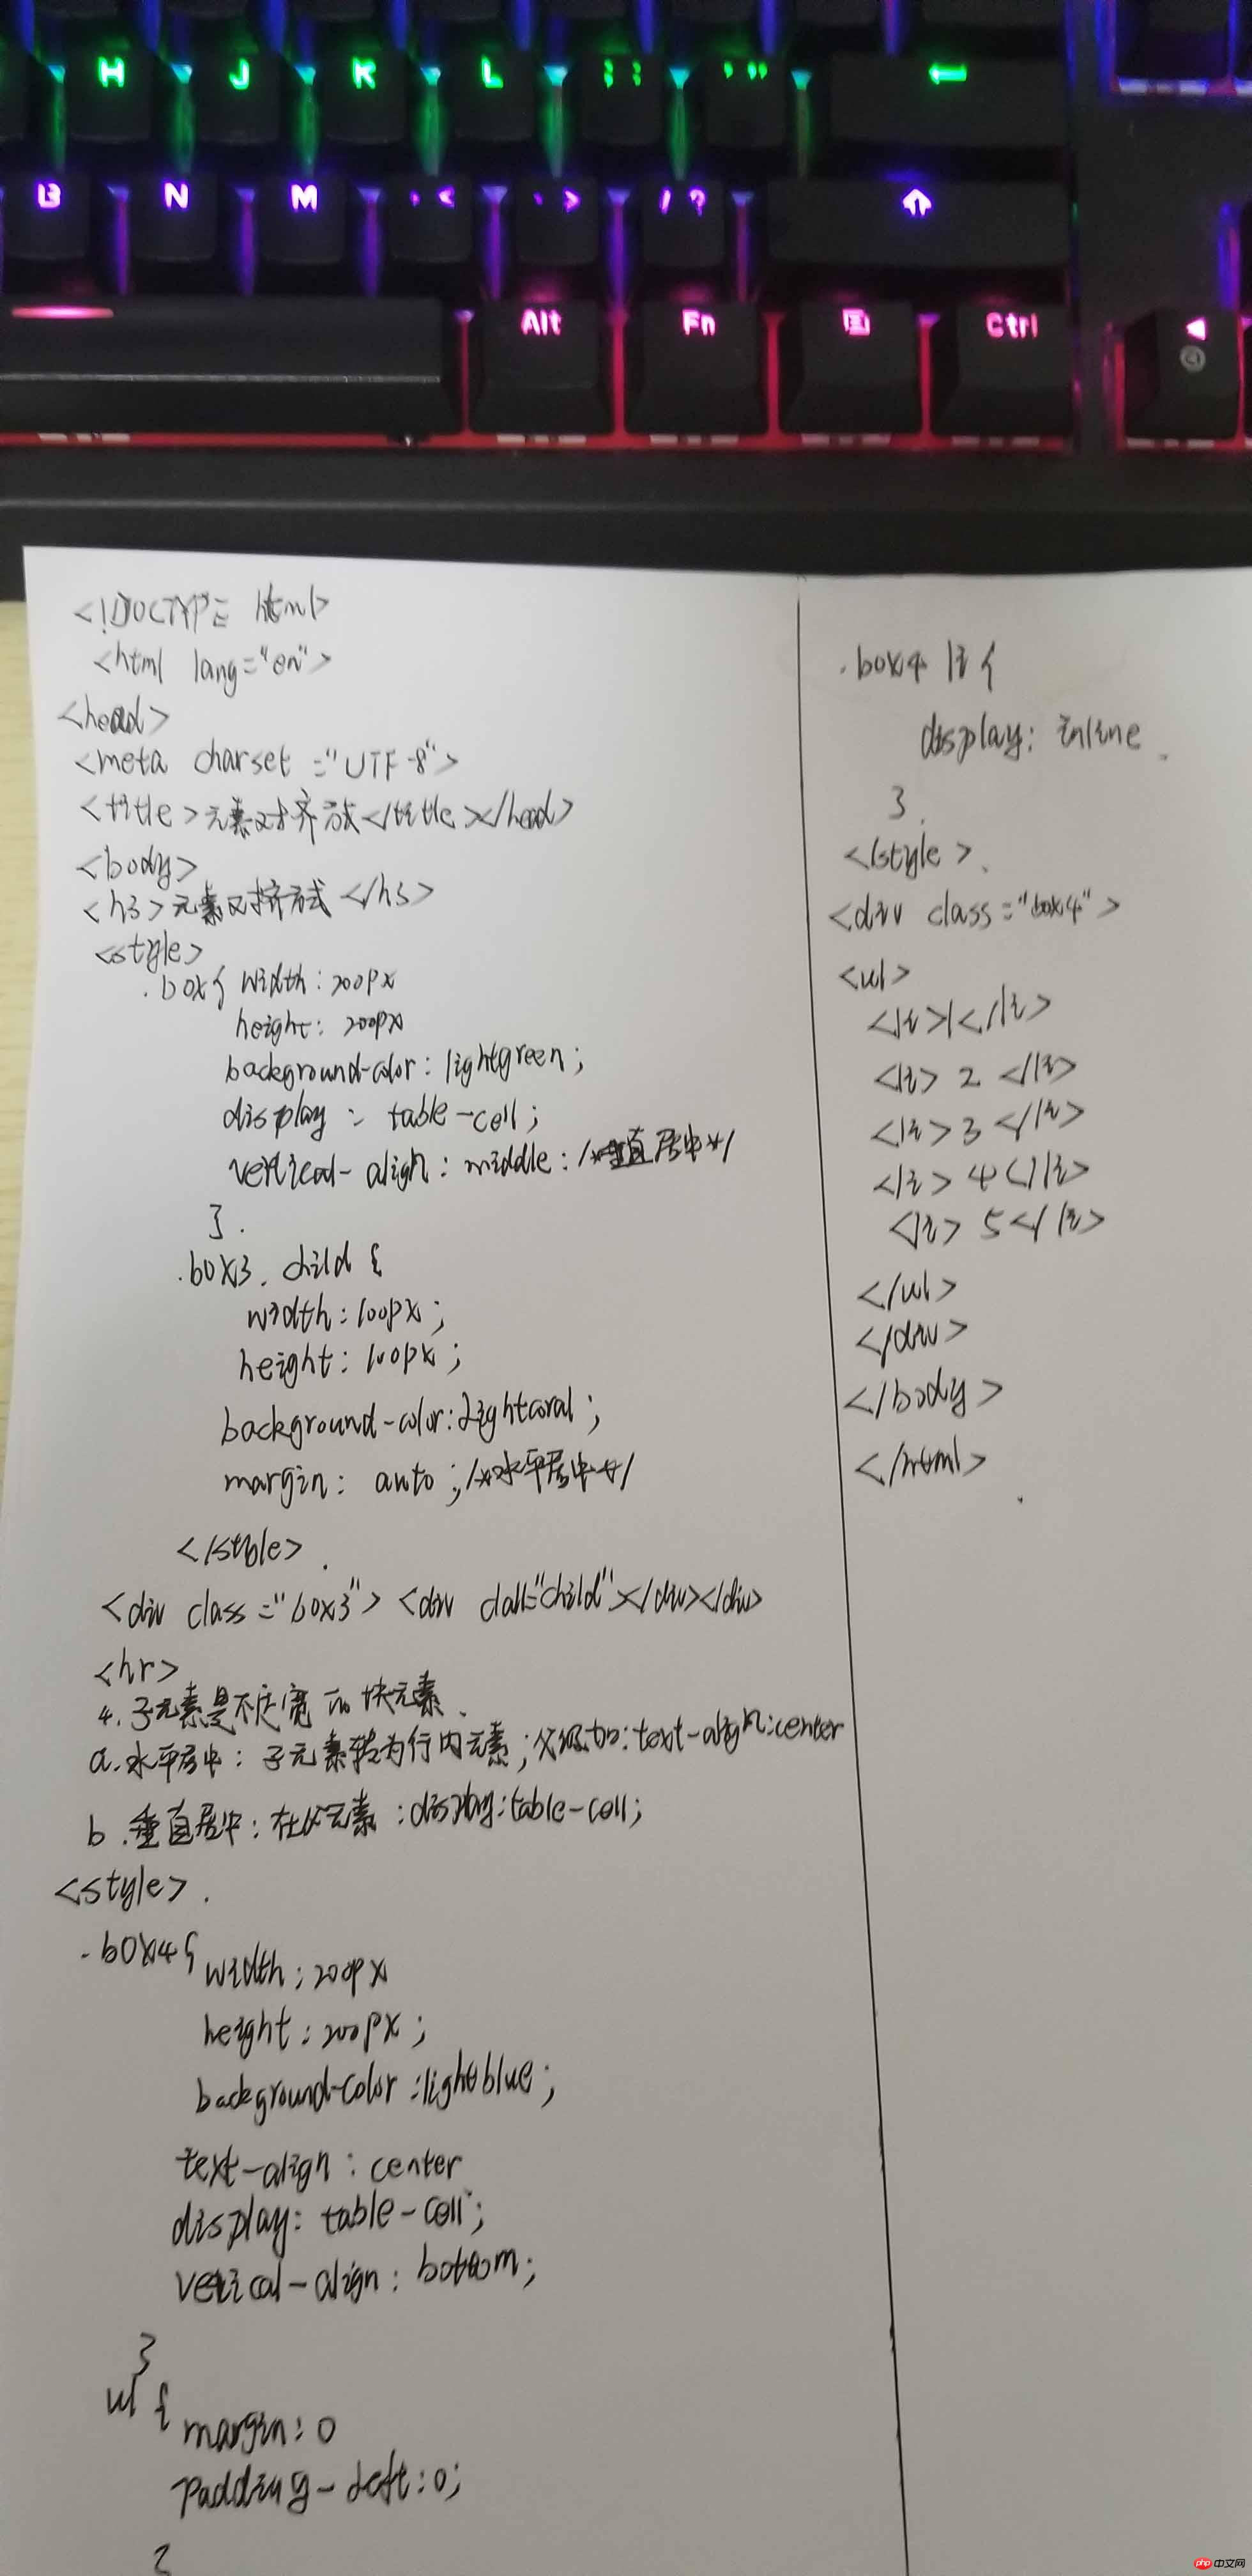 H J K L : ; ' "
B N M , < . > / ?
Alt Fn Ctrl
<!DOCTYPE html>
<html lang="en">
<head>
<meta charset ="UTF-8">
<title>元素对齐方式</title></head>
<body>
<h3>元素对挤方式</h3>
<style>
.box{ width:200px
height: 200px
background-color: lightgreen;
display : table-cell;
vertical-align: middle: /*垂直居中*/
}.
.box3 .child {
width:100px;
height:100px;
background-color:Lightcoral;
margin: auto;/*水平居中*/
</style>.
<div class="box3"> <div ="child"></div></div>
<hr>
4.子元素是不定宽的块元素.
a.水平居中: 子元素转为行内元素;父级加:text-align:center
b.垂直居中:在父元素:display:table-cell;
<style>.
.box4{ width:200px
height:200px;
background-color:lightblue;
text-align:center
display: table-cell;
vertical-align: bottom;
}
ul { margin:0
padding-left:0;
}
.box4 li {
display: inline.
}.
</style>.
<div class="box4">
<ul>
<li>1</li>
<li>2</li>
<li>3</li>
<li>4</li>
<li>5</li>
</ul>
</div>
</body>
</html>
php 中文网